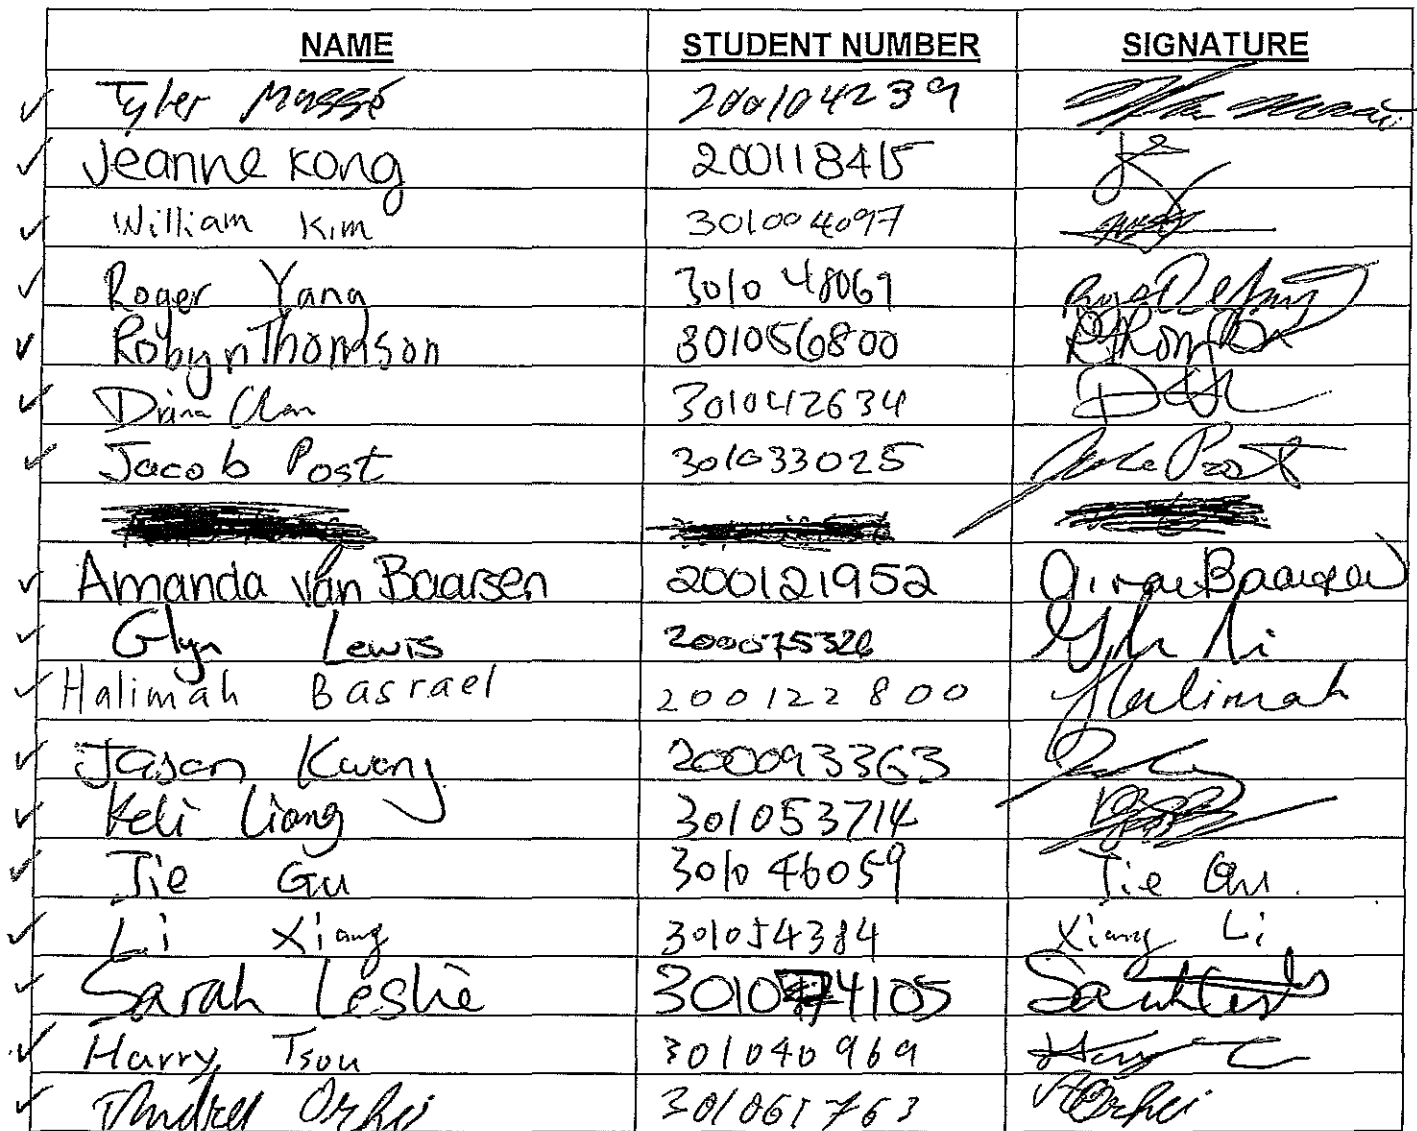 NAME STUDENT NUMBER SIGNATURE
Tyler Massé 200104239
Jeanne Kong 200118415
William Kim 301004097
Roger Yang 301048069
Robyn Thomson 301056800
Diana Chan 301042634
Jacob Post 301033025 Jake Post
Amanda van Baarsen 200121952 Baarsen
Glyn Lewis 200075326
Halimah Basrael 200122800 Halimah
Jason Kwong 200093363
Keli Liang 301053714
Jie Gu 301046059 Jie Gu.
Li Xiang 301054384 Xiang Li
Sarah Leslie 3010 4105 Sarah
Harry Tsou 301040969 Harry
Andrei Orhei 301061763 Orhei